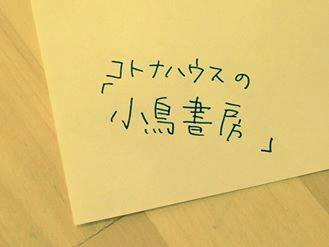 コトナハウスの
「小鳥書房」